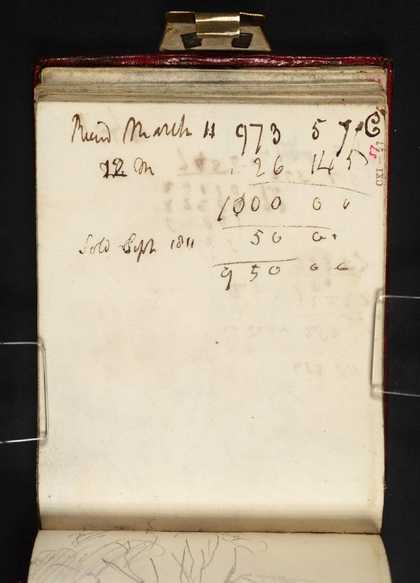 March 11 973 5 7
12 M 26 14 5
1000 0 0
Sold Sept 1811 50 0 0
950 0 0
57
CXI - 57